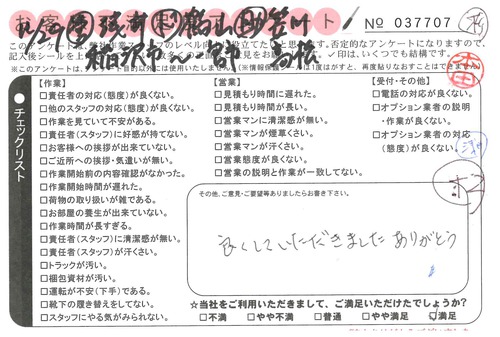 お客様アンケート No 037707
記入後シールを上
※このアンケートは、 ※情報保護シールは1度はがすと、再度貼りなおすことはできません
チェックリスト
【作業】
□責任者の対応(態度)が良くない。
□他のスタッフの対応(態度)が良くない。
□作業を見ていて不安がある。
□責任者(スタッフ)に好感が持てない。
□お客様への挨拶が出来ていない。
□ご近所への挨拶・気遣いが無い。
□作業開始前の内容確認がなかった。
□作業開始時間が遅れた。
□荷物の取り扱いが雑である。
□お部屋の養生が出来ていない。
□作業時間が長すぎる。
□責任者(スタッフ)に清潔感が無い。
□責任者(スタッフ)が汗くさい。
□トラックが汚い。
□梱包資材が汚い。
□運転が不安(下手)である。
□靴下の履き替えをしてない。
□スタッフにやる気がみられない。
【営業】
□見積もり時間に遅れた。
□見積もり時間が長い。
□営業マンに清潔感が無い。
□営業マンが煙草くさい。
□営業マンが汗くさい。
□営業態度が良くない。
□営業の説明と作業が一致してない。
【受付・その他】
□電話の対応が良くない。
□オプション業者の説明
・作業が良くない。
□オプション業者の対応
(態度)が良くない。
その他、ご意見・ご要望等ありましたらお書き下さい。
良くしていただきました ありがとう
☆当社をご利用いただきまして、ご満足いただけたでしょうか?
□不満 □やや不満 □普通 □やや満足 ☑満足